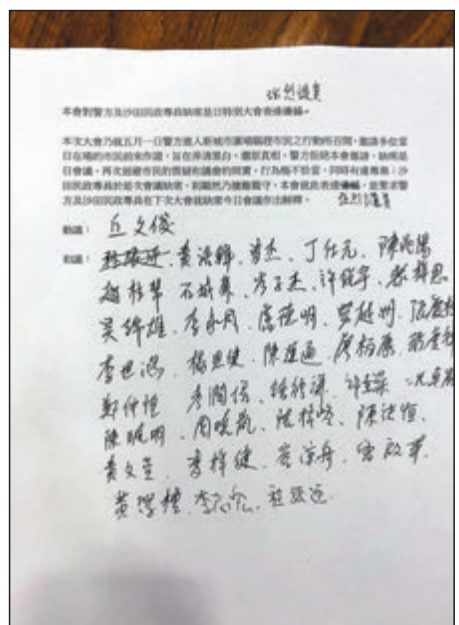 強烈譴責
本會對警方及沙田民政專員缺席是日特別大會表達遺憾。
本次大會乃就五月一日警方進入新城市廣場驅趕市民之行動所召開，邀請多位當
日在場的市民前來作證，旨在弄清黑白、還原真相。警方拒絕本會邀請、缺席是
日會議，再次迴避市民的質疑和議會的問責，行為極不恰當，同時有違專業；沙
田民政專員於是次會議缺席，則顯然乃擅離職守。本會就此表達遺憾，並要求警
方及沙田民政專員在下次大會就缺席今日會議作出解釋。 強烈譴責
動議： 丘文俊
和議： 黃浩鋒、曾杰、丁仕元、陳兆陽
趙柱幫 石威廉、岑子杰、許銳宇、蔡梓恩
吳錦雄、李永成、盧德明、羅越洲、
李世鴻、楊思健、陳運通、廖栢康、
鄭仲恒 李潤信、
陳珮明、周曉嵐、陸梓峑、陳諾恒、
黃文萱、麥梓健、容溟舟、衞慶祥
黃學禮、李志宏、程張迎